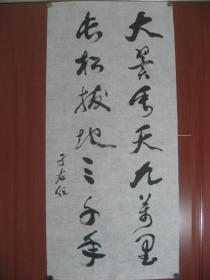 大翼垂天九萬里
長松拔地三千年
于右任